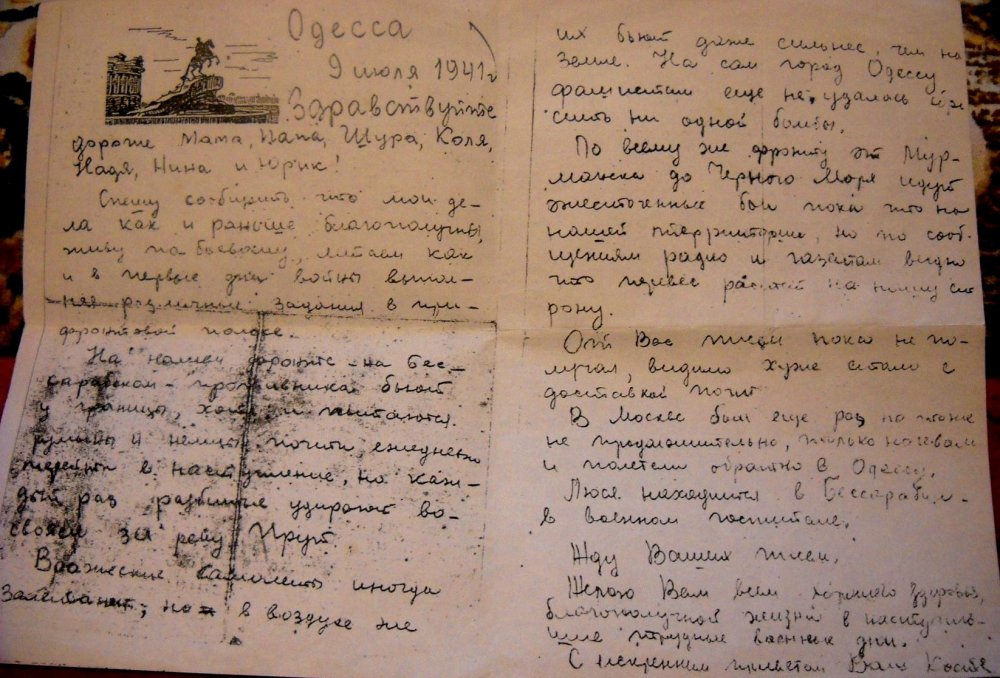 Одесса
9 июля 1941 г
Здравствуйте
дорогие Мама, Папа, Шура, Коля,
Надя, Нина и Юрик!
Спешу сообщить что мои де-
ла как и раньше благополучны,
живу по боевому, летаем как
и в первые дни войны выпол-
няя различные задания в при-
фронтовой полосе.
На нашем фронте - на Бес-
сарабском - противника бьют
у границы, хотя и пытаются
румыны и немцы почти ежедневно
перейти в наступление, но каж-
дый раз разбитые удирают во-
свояси за реку Прут.
Вражеские самолеты иногда
залетают, но в воздухе же
их бьют даже сильнее, чем на
земле. На сам город Одессу
фашистам еще не удалось сбро-
сить ни одной бомбы.
По всему же фронту от Мур-
манска до Черного Моря идут
ожесточенные бои пока что на
нашей территории, но по сооб-
щениям радио и газетам видно
что перевес растет на нашу ст
рону.
От Вас писем пока не по-
лучал, видимо хуже стало с
доставкой почт
В Москве был еще раз но тоже
не продолжительно, только ночевали
и полетели обратно в Одессу.
Люся находится в Бессарабии -
в военном госпитале.
Жду Ваших писем.
Желаю Вам всем хорошего здоровья,
благополучной жизни в наступив-
шие трудные военные дни.
С искренним приветом Ваш Костя